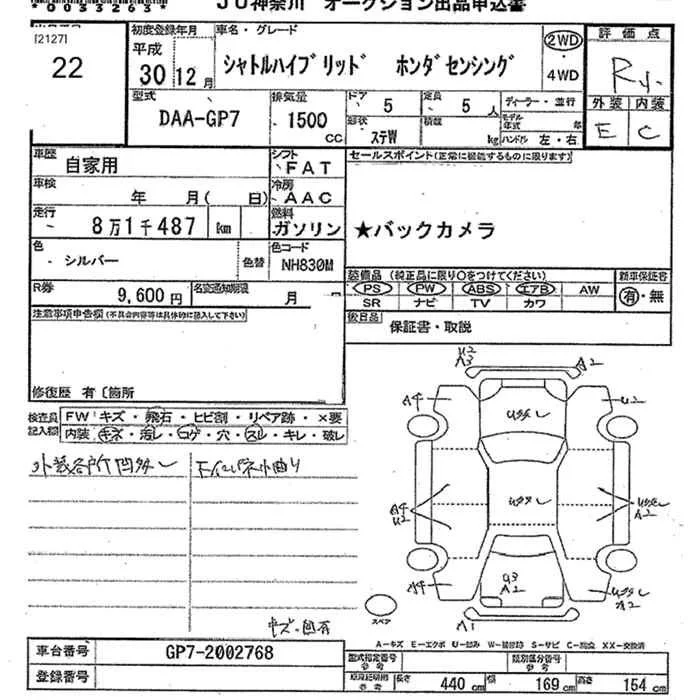 *0053263*
JU神奈川 オークション出品申込書
[2127]
22
初度登録年月
平成
30 12月
車名・グレード
シャトルハイブリッド ホンダセンシング
2WD
・
4WD
評価点
R
外装 内装
E C
型式
DAA-GP7
排気量
1500
CC
ドア
5
定員
5 人
ディーラー・並行
形状
ステW
積載
kg
モデル年式 年
ハンドル 左・右
車歴
自家用
シフト
FAT
車検
年 月( 日)
冷房
AAC
走行
8万1千487 km
燃料
ガソリン
色
シルバー
色替
色コード
NH830M
R券
9,600円
名変通知期限
月
セールスポイント(正常に機能するものに限ります)
★バックカメラ
装備品 (純正品に限り○をつけてください)
PS PW ABS エアB AW
SR ナビ TV カワ
新車保証書
有・無
後日品
保証書・取説
注意事項申告欄(不具合内容等は具体的に記入して下さい)
修復歴 有〔箇所
検査員記入欄
FW キズ・飛石・ヒビ割・リペア跡・×要
内装 キズ・汚レ・コゲ・穴・スレ・キレ・破レ
外装各所凹多し
キズ・凹有
U2
A3
A2
A4
U2
U多し
A4
U2
U多し
U多し
A2
A4
U3
A2
U多し
A2
A1
スペア
A-キズ E-エクボ U-凹み W-補修跡 S-サビ C-腐食 XX-交換済
車台番号
GP7-2002768
登録番号
型式指定番号
参考
類別区分番号
参考
車検証明細
参考
長さ
440 cm
幅
169 cm
高さ
154 cm